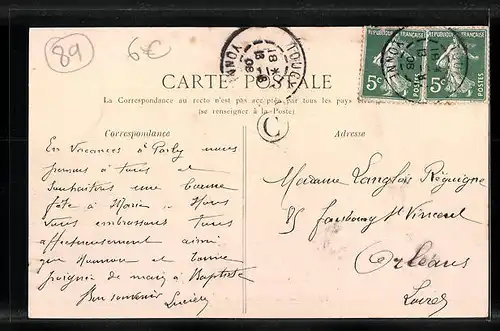 89
6€
TOUCY
YONNE
18 *
13 -8
08
REPUBLIQUE FRANÇAISE
5c
POSTES
REPUBLIQUE FRANÇAISE
5c
POSTES
CARTE POSTALE
La Correspondance au recto n'est pas acceptée par tous les pays
(se renseigner à la Poste)
C
Correspondance
En vacances à Parly nous
pensons à tous et
souhaitons une bonne
fête à Marie. Nous
vous embrassons tous
affectueusement ainsi
que et bonne
poignée de main à Baptiste
Bon souvenir
Lucien
Adresse
Madame Langlois Réguigne
85 faubourg St Vincent
Orléans
Loiret